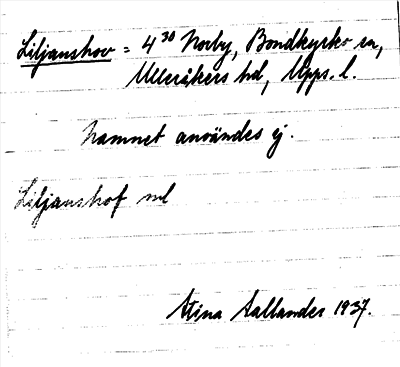 Liljanshov = 4³⁰ Norby, Bondkyrko sn,
Ulleråkers hd, Upps. l.
Namnet användes ej.
Liljanshof ml
Stina Sallander 1937.